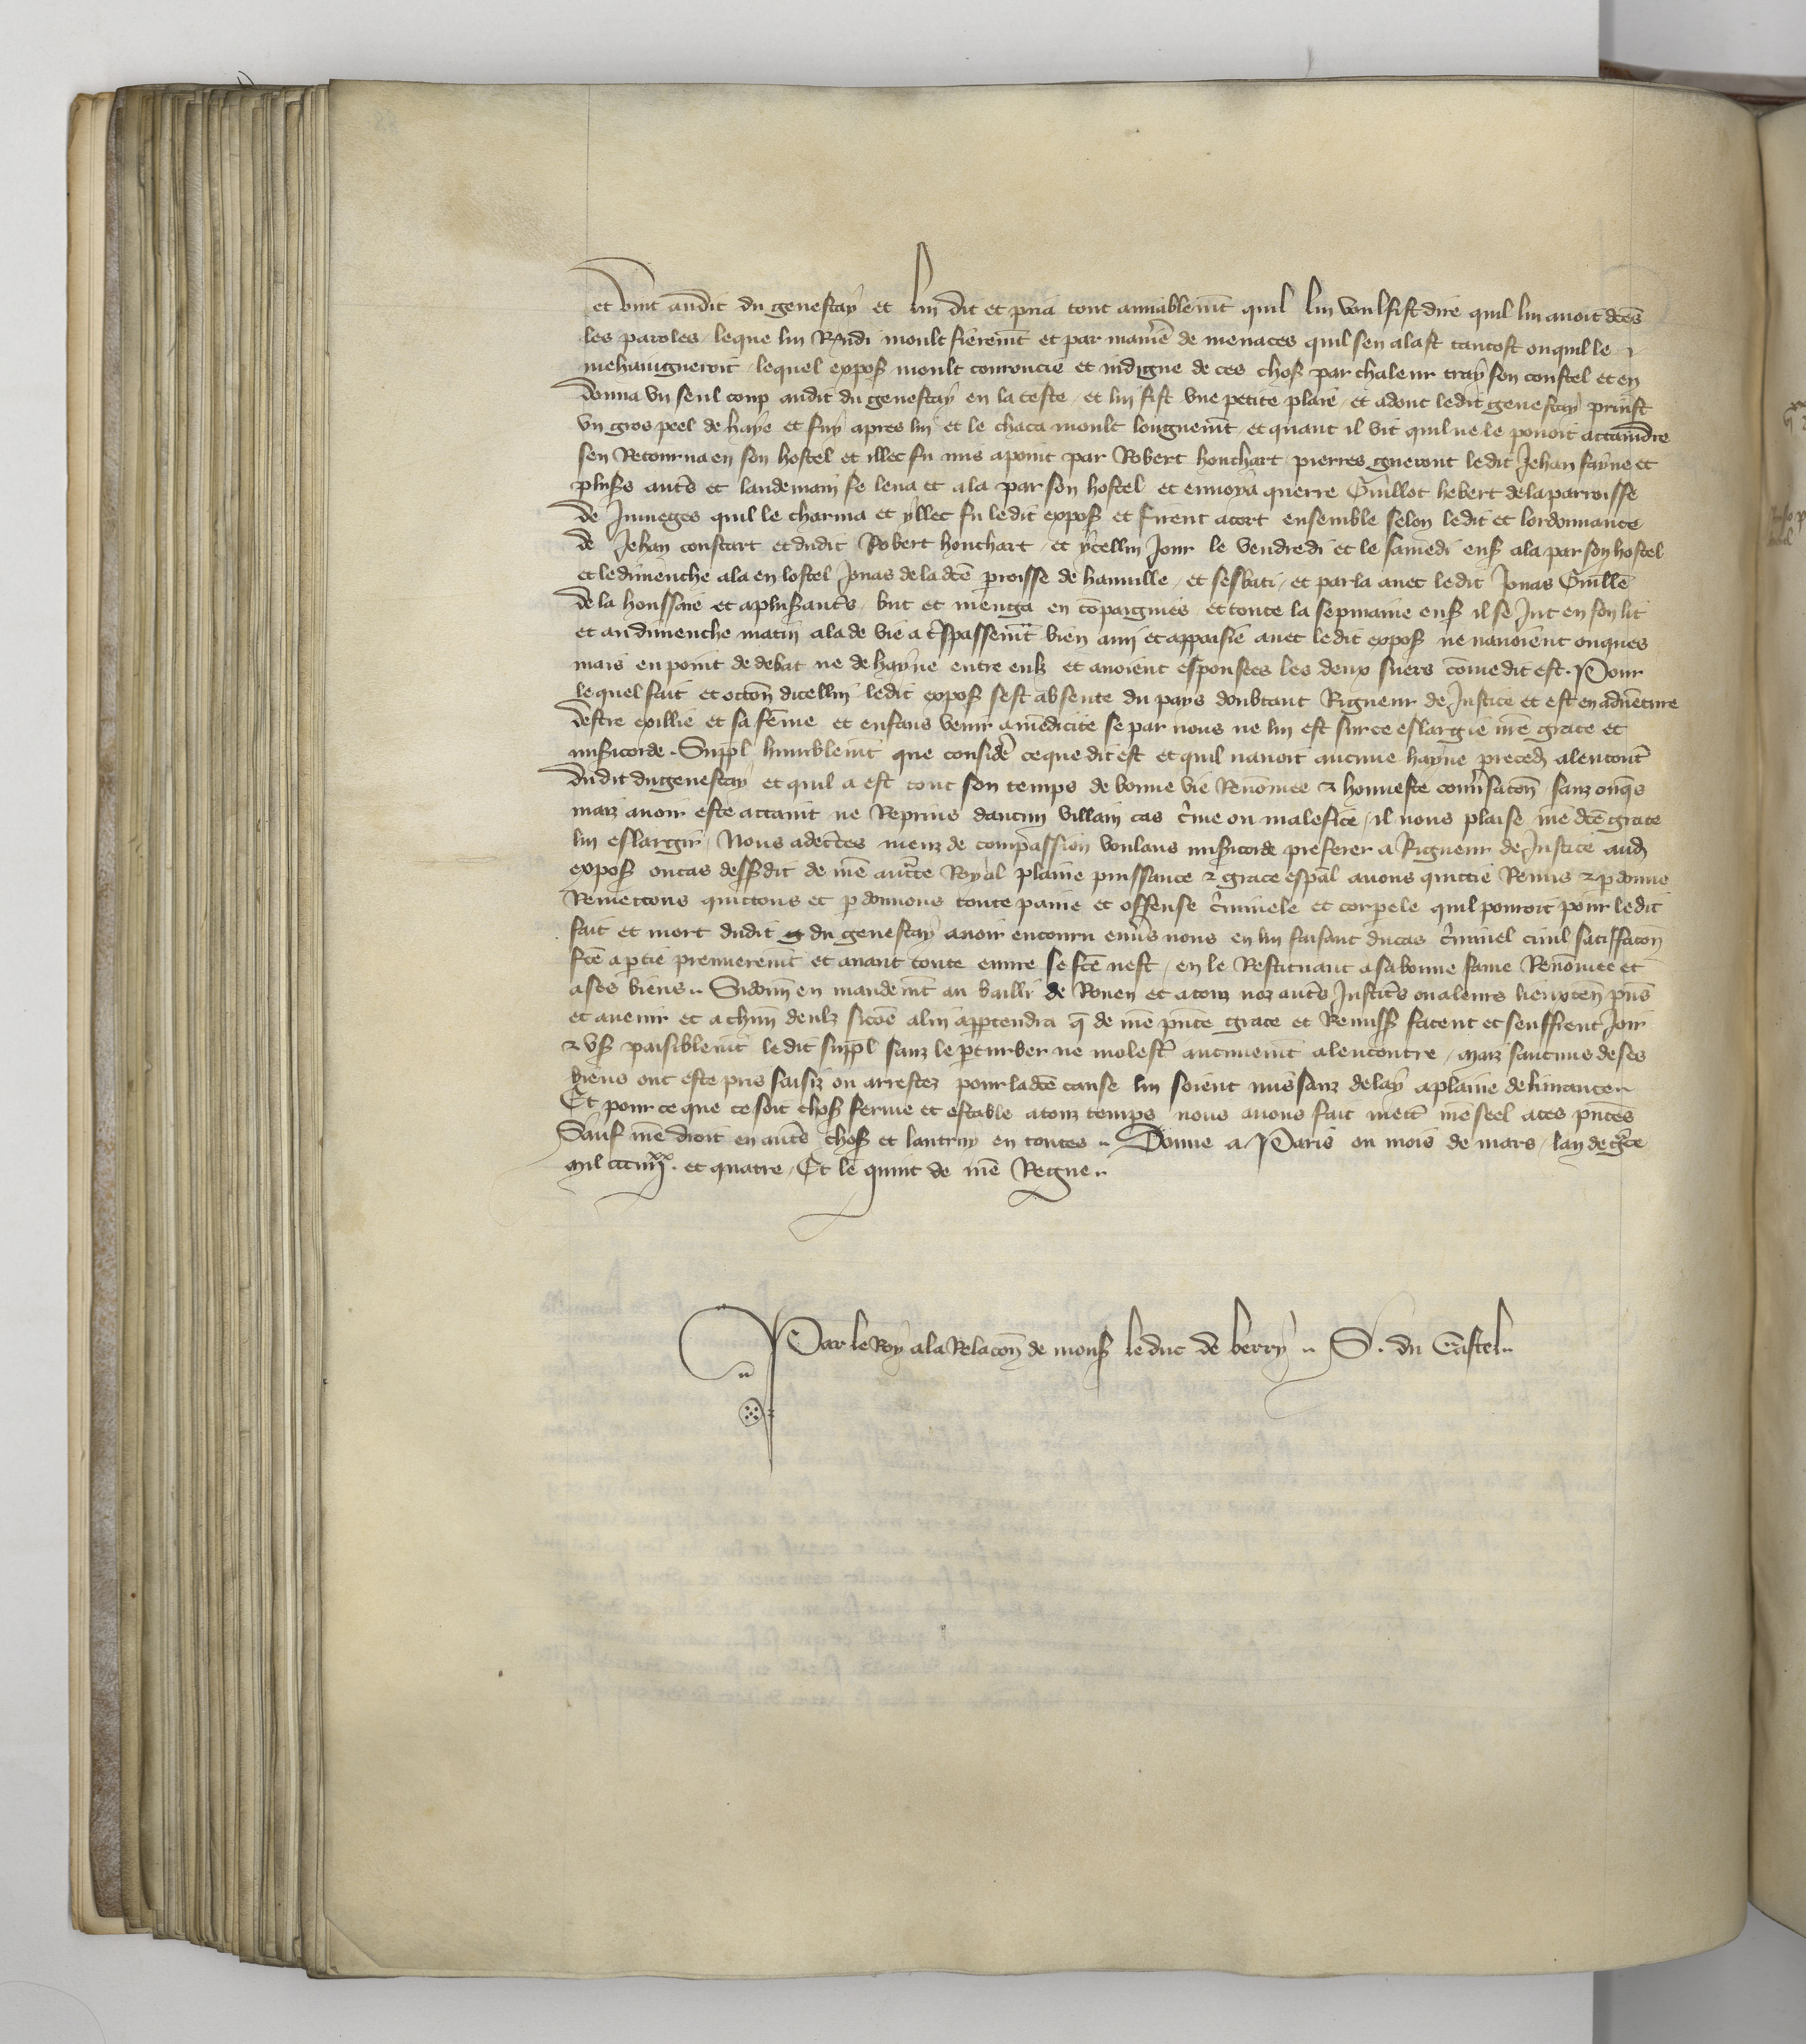 et vint audit du genestay et lui dit et pria tout amiablemt quil lui voulsist dire quil lui avoit dces
les paroles / leque lui Rndi moult fieremt et par manie de menaces quil sen alast tantost ou quil le
mehaingneroit / lequel expos moult courroucie et indigne de ces chos par chaleur tray son coustel et en
donna un seul coup audit du genestay en la teste / et lui fist une petite plaie / et adonc ledit genestay prinst
un gros peel de haye et fuy apres lui et le chaca moult longuemt / et quant il vit quil ne le pouoit attaindre
sen Retourna en son hostel et illec fu mis apoint par Robert houchart pierres gueront ledit Jehan fayne et
plus auts et landemain se leva et ala par son hostel et envoya querre Guillot hebert de la parroisse
de Jumeges quil le charma et yllec fu ledit expos et firent acort ensemble selon ledit et lordonnance
de Jehan coustart et dudit Robert houchart / et ycellui Jour le vendredi et le samedi ens ala par son hostel
et le dimenche ala en lostel Jonas de la dce proisse de hauville / et sesbati / et parla avec ledit Jonas Guille
de la houssaie et a plus auts / but et menga en compaignies / et toute la sepmaine ens il se Jut en son lit
et au dimenche matin ala de vie a trespassemt bien ami et appaisie avec ledit expos ne navoient onques
mais eu point de debat ne de hayne entre eulz et avoient espousees les deux suers come dit est. Pour
lequel fait et occon dicellui ledit expos sest absente du pays doubtant Rigueur de Justice et est en adventure
destre exillie et sa feme et enfans venir a mendicite se par nous ne lui est sur ce eslargie nre grace et
misicorde. Suppl humblemt que consider ce que dit est et quil navoit aucune hayne preced alencont
dudit du genestay et quil a est tout son temps de bonne vie Renomee & honneste conversacon sanz onqs
maiz avoir este attaint ne Reprins daucun villain cas crime ou malefice / il nous plaise nre dce grace
lui eslargir / Nous adectes meuz de compassion voulans misicorde preferer a Rigueur de Justice aud
expos ou cas dessdit de nre aucte Royal plaine puissance & grace espal avons quittie Remis & pdonne
Remettons quittons et pdonnons toute paine et offense criminele et corpele quil pouroit pour ledit
fait et mort dudit g du genestay avoir encouru envers nous en lui faisant du cas criminel civil satiffacon
fce a partie premieremt et avant toute euvre se fce nest / en le Restituant a sa bonne fame Renomee et
a ses biens .. Si donn en mandemt au bailli de Rouen et a touz noz auts Justices ou a leurs lieuxten pns
et avenir et a chun deulz sicoe a lui apptendra q de nre pnte grace et Remiss facent et seuffrent Joir
& us paisiblemt ledit suppl sanz le pturber ne molest aucunemt alencontre / maiz saucuns de ses
biens ont este pris saisiz ou arrestez pour ladce cause lui soient mis sanz delay a plaine delivrance ..
Et pour ce que ce soit chos ferme et estable a touz temps nous avons fait mett nre seel a ces pntes
Sauf nre droit en auts chos et lautruy en toutes .. Donne a Paris ou mois de mars / lan de gce
mil ccc iiiixx. et quatre / Et le quint de nre Regne ..
Par le Roy a la Relacon de mons le duc de berry .. S. du Castel ..